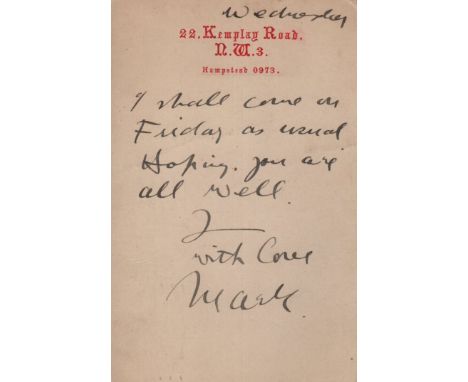 Wednesday
22, Kemplay Road,
N.W.3.
Hampstead 0973.
I shall come on
Friday as usual
Hoping you are
all well.
I
with Love
Mark